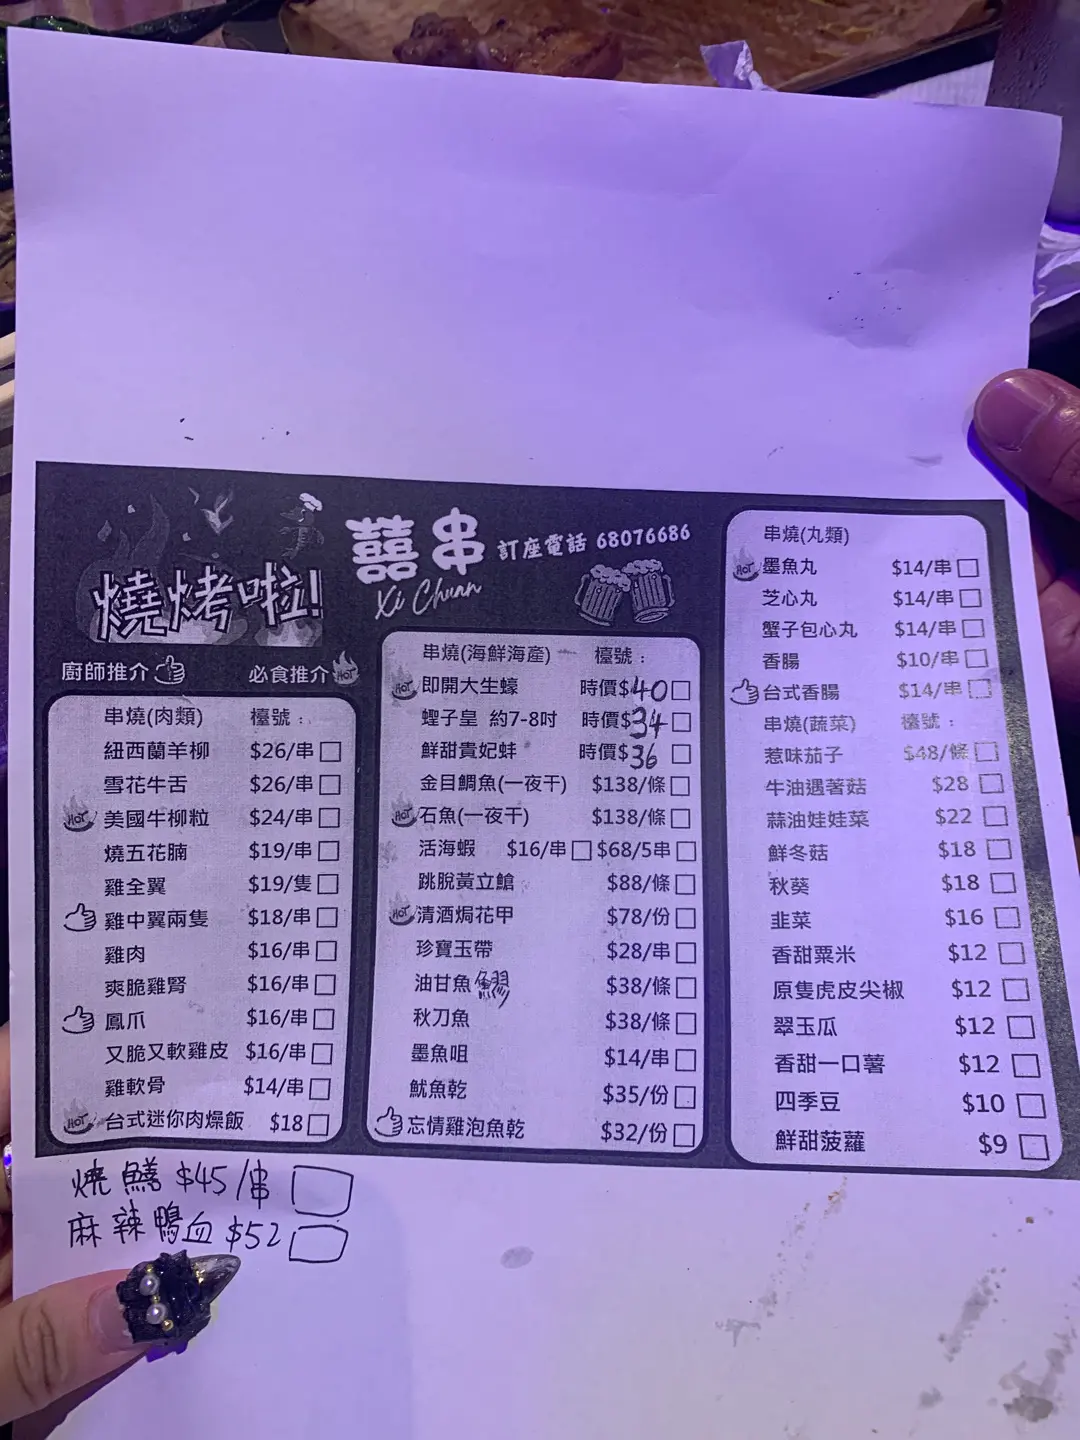 燒烤啦!
囍串
Xi Chuan
訂座電話 68076686
廚師推介
必食推介 HOT
串燒(肉類) 檯號：
紐西蘭羊柳 $26/串
雪花牛舌 $26/串
HOT 美國牛柳粒 $24/串
燒五花腩 $19/串
雞全翼 $19/隻
雞中翼兩隻 $18/串
雞肉 $16/串
爽脆雞腎 $16/串
鳳爪 $16/串
又脆又軟雞皮 $16/串
雞軟骨 $14/串
HOT 台式迷你肉燥飯 $18
串燒(海鮮海產) 檯號：
HOT 即開大生蠔 時價$40
蟶子皇 約7-8吋 時價$34
鮮甜貴妃蚌 時價$36
金目鯛魚(一夜干) $138/條
HOT 石魚(一夜干) $138/條
活海蝦 $16/串 $68/5串
跳脫黃立鯧 $88/條
HOT 清酒焗花甲 $78/份
珍寶玉帶 $28/串
油甘魚 $38/條
秋刀魚 $38/條
墨魚咀 $14/串
魷魚乾 $35/份
忘情雞泡魚乾 $32/份
串燒(丸類)
HOT 墨魚丸 $14/串
芝心丸 $14/串
蟹子包心丸 $14/串
香腸 $10/串
台式香腸 $14/串
串燒(蔬菜) 檯號：
惹味茄子 $48/條
牛油遇著菇 $28
蒜油娃娃菜 $22
鮮冬菇 $18
秋葵 $18
韭菜 $16
香甜粟米 $12
原隻虎皮尖椒 $12
翠玉瓜 $12
香甜一口薯 $12
四季豆 $10
鮮甜菠蘿 $9
燒鱔 $45/串
麻辣鴨血 $52